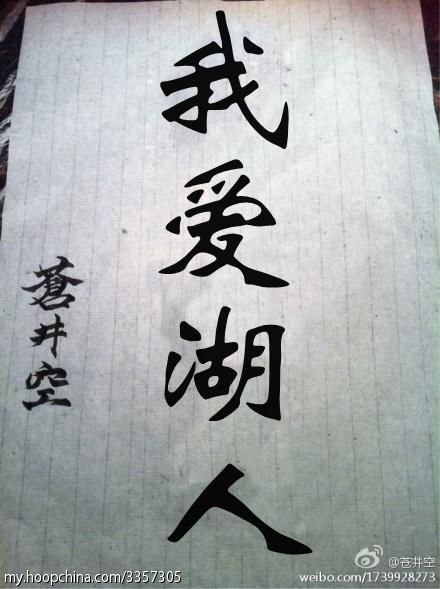 我爱湖人
蒼井空
@苍井空
my.hoopchina.com/3357305
weibo.com/1739928273